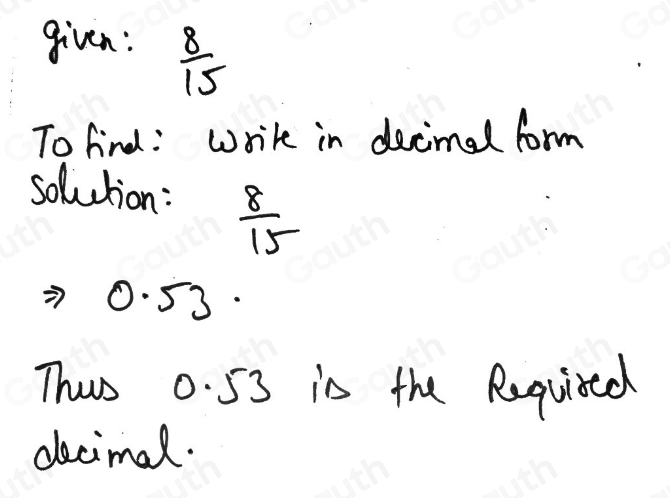 given: 8/15
To find: write in decimal form
Solution: 8/15
⇒ 0.53.
Thus 0.53 is the Required
decimal.